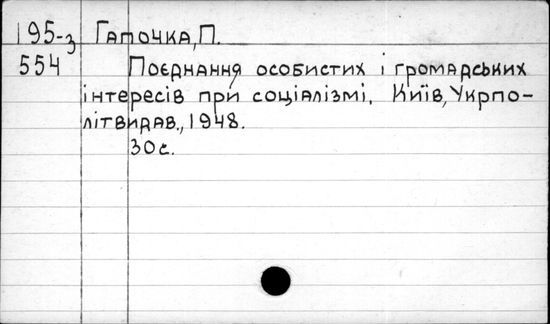 195-з Гапочка, П.
554 Поєднання особистих і громадських
інтересів при соціалізмі. Київ, Укрпо-
літвидав., 1948.
30с.